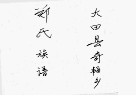 大田县奇韬乡
郑氏族谱